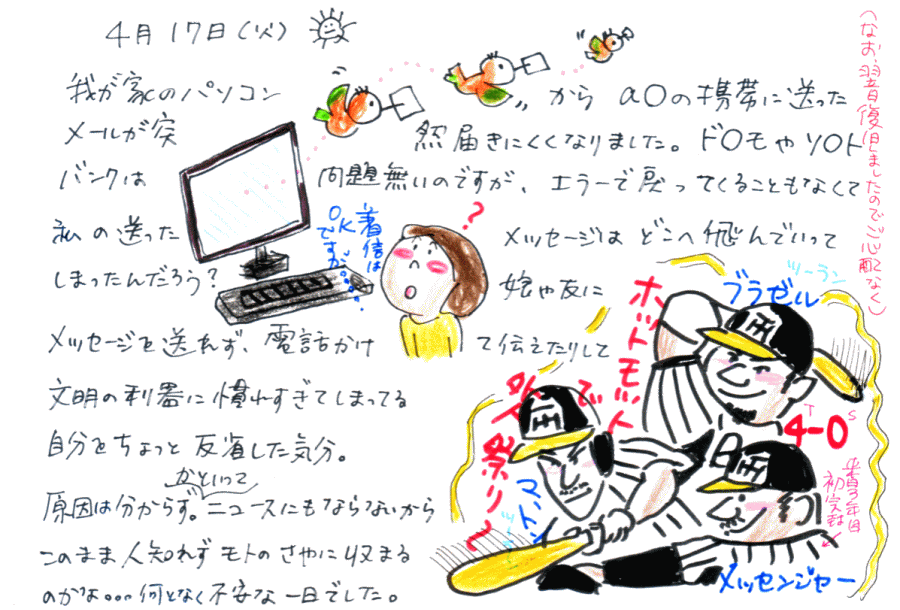 4月17日(火)
(なお、翌普復旧しましたのでご心配なく)
我が家のパソコン から aOの携帯に送った
メールが突 然届きにくくなりました。ドOモやソOト
バンクは 問題無いのですが、エラーで戻ってくることもなくて
私の送った メッセージは どこへ飛んでいって
しまったんだろう? 娘や友に
メッセージを送れず、電話かけ て伝えたりして
文明の利器に慣れすぎてしまってる
自分をちょっと反省した気分。
原因は分からず。かといってニュースにもならないから
このまま人知れずモトのさやに収まる
のかな。。。何となく不安な一日でした。
着信は
OK
ですが。。。。。
?
ツーラン
ブラゼル
ホットモット
で
祭り〜
マートン
T 4-0 S
初完封
メッセンジャー